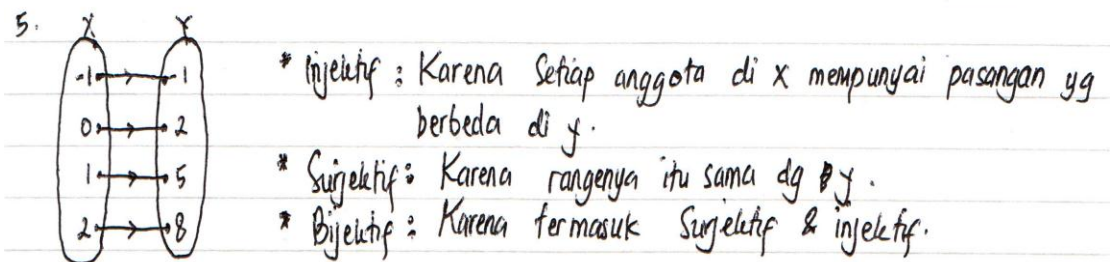 5.
X Y
-1 -1
* Injektif : Karena Setiap anggota di x mempunyai pasangan yg
0 2
berbeda di y.
1 5
* Surjektif : Karena rangenya itu sama dg y.
2 8
* Bijektif : Karena termasuk Surjektif & injektif.